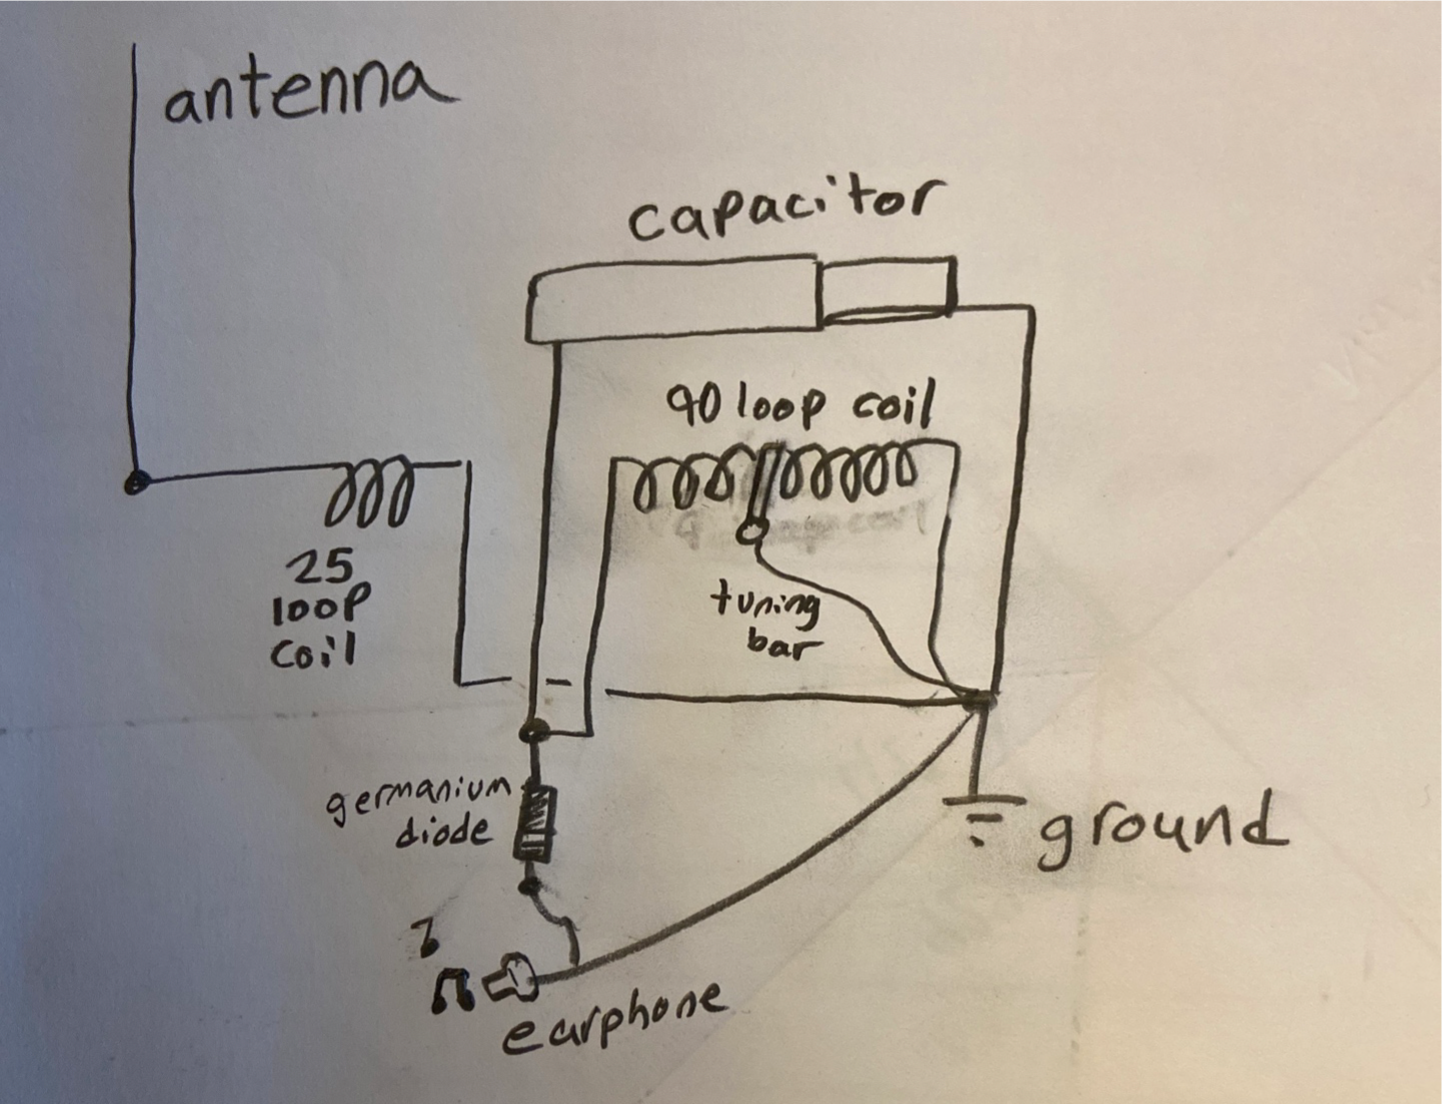 antenna
capacitor
90 loop coil
25
loop
coil
tuning
bar
germanium
diode
ground
earphone